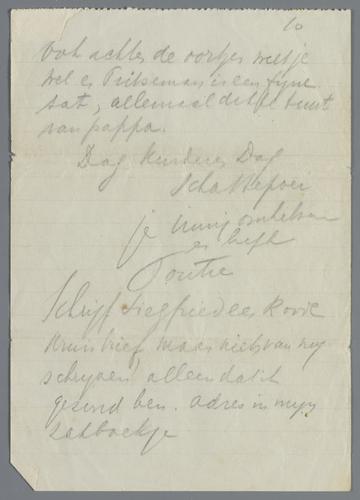 10
ook achter de oortjes weet je
wel en is een fijne
allemaal
van pappa.
Dag kinderen Dag
Schattepoei
je innig
en liefh
Toutie
Schrijf Siegfried een Roode
Kruis brief maar niets van mij
schrijven alleen dat ik
gezond ben. adres in mijn
zakboekje